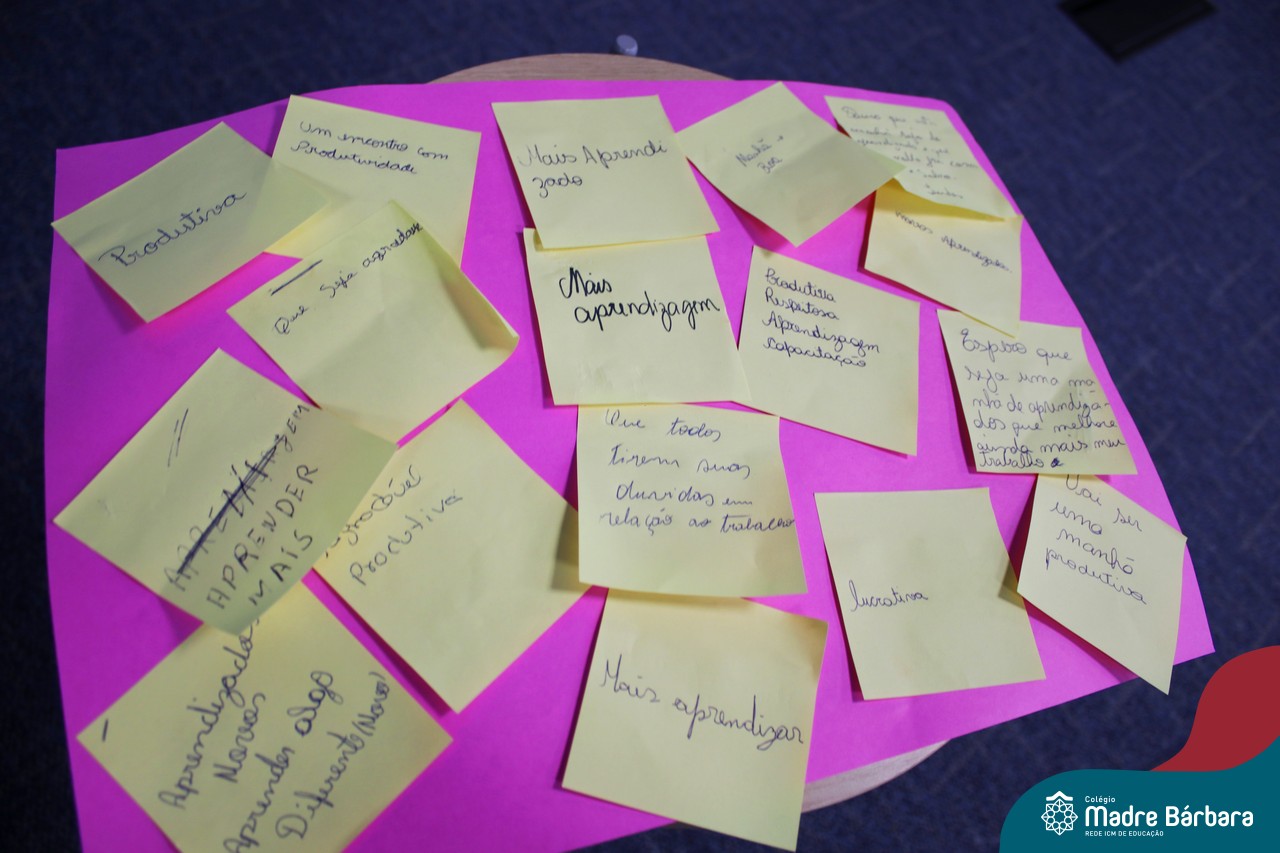 Produtiva
Um encontro com
Produtividade
Que seja agradável
Mais Aprendi
zado
Mais
aprendizagem
Manhã
Boa
novos aprendizados
Produtiva
Respeitosa
Aprendizagem
Capacitação
Espero que
seja uma ma
nhã de aprendiza-
dos que melhore
ainda mais meu
trabalho
Que todos
tirem suas
duvidas em
relação ao trabalho
lucrativa
Vai ser
uma
manhã
produtiva
APRENDER
MAIS
Produtiva
Aprendizados
Novos
Aprender algo
Diferente (Novo)
Mais aprendizar
Colégio
Madre Bárbara
REDE ICM DE EDUCAÇÃO